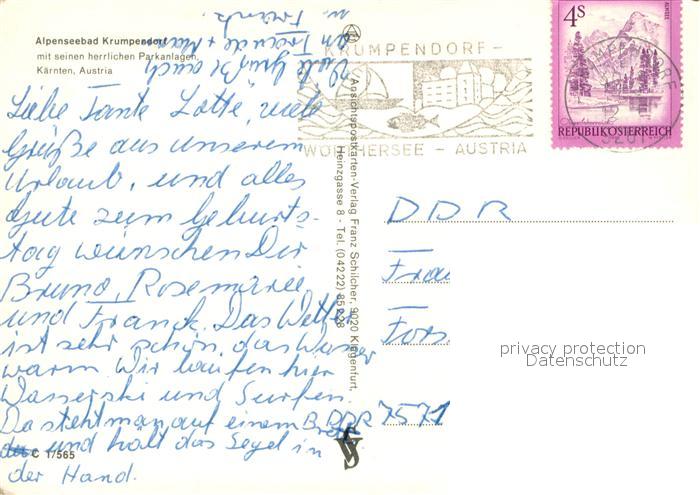 Alpenseebad Krumpendorf
mit seinen herrlichen Parkanlagen,
Kärnten, Austria
Liebe Tante Lotte, viele
Grüße aus unserem
Urlaub, und alles
Gute zum Geburts-
tag wünschen Dir
Bruno, Rosemarie
und Franck. Das Wetter
ist sehr schön, das Wasser
warm. Wir laufen hier
Wasserski und Surfen.
Da steht man auf einem Brett
und hält das Segel in
der Hand.
Viele Grüße auch
an
u.
C 1/565
Ansichtspostkarten-Verlag Franz Schilcher, 9020 Klagenfurt,
Heinzgasse 8 - Tel. (04222) 85
KRUMPENDORF -
WÖRTHERSEE - AUSTRIA
4S
ALMSEE
REPUBLIK ÖSTERREICH
KRUMPENDORF
DDR
Frau
Fors
DDR 7571
privacy protection
Datenschutz